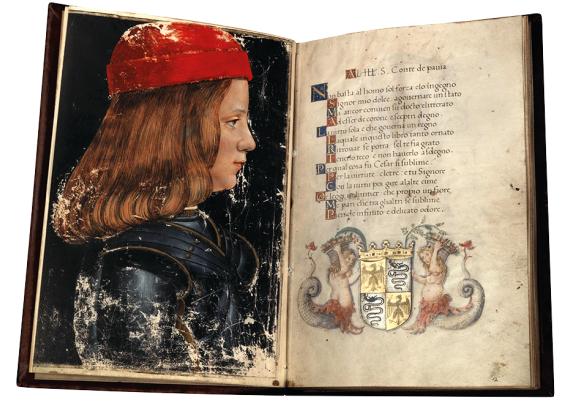 AL ILL. S. Conte de pauia
Non basta al homo sol forza e lo ingegno
Signor mio dolce. a gouernare un stato
Ma ancor conuien sii docto e litterato
di corone e sceptri degno
L sola e che gouerna un regno
quale in questo libro tanto ornato
Ritrouar se potra sel te fia grato
Tenerlo teco e non hauerlo a sdegno.
Per qual cosa fu Cesar si sublime
Per la uirtute e letre: e tu Signore
Con la uirtu poi gire al alte cime
che propio un fiore
Me par che tra gli altri se sublime
Pien de infinito e delicato odore.